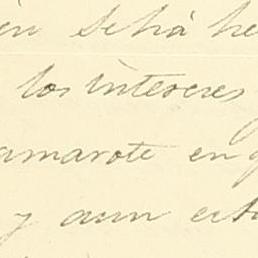 se há he
los intereses
amarote en
y aun est